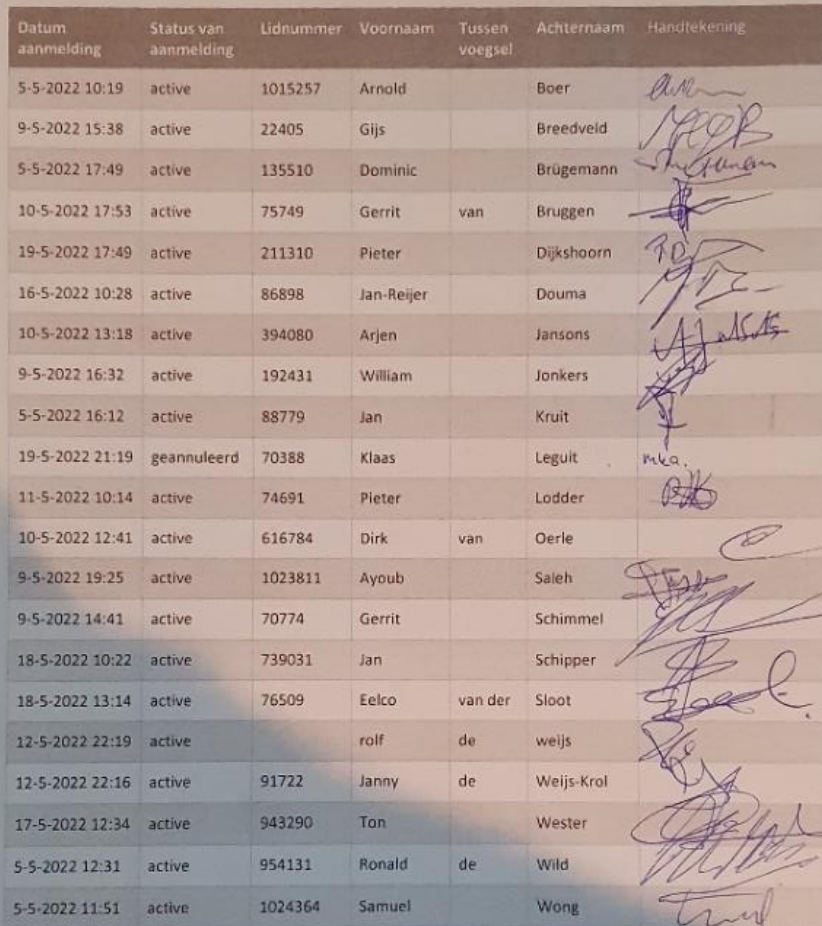 Datum aanmelding Status van aanmelding Lidnummer Voornaam Tussen voegsel Achternaam Handtekening
5-5-2022 10:19 active 1015257 Arnold Boer
9-5-2022 15:38 active 22405 Gijs Breedveld
5-5-2022 17:49 active 135510 Dominic Brügemann
10-5-2022 17:53 active 75749 Gerrit van Bruggen
19-5-2022 17:49 active 211310 Pieter Dijkshoorn
16-5-2022 10:28 active 86898 Jan-Reijer Douma
10-5-2022 13:18 active 394080 Arjen Jansons
9-5-2022 16:32 active 192431 William Jonkers
5-5-2022 16:12 active 88779 Jan Kruit
19-5-2022 21:19 geannuleerd 70388 Klaas Leguit
11-5-2022 10:14 active 74691 Pieter Lodder
10-5-2022 12:41 active 616784 Dirk van Oerle
9-5-2022 19:25 active 1023811 Ayoub Saleh
9-5-2022 14:41 active 70774 Gerrit Schimmel
18-5-2022 10:22 active 739031 Jan Schipper
18-5-2022 13:14 active 76509 Eelco van der Sloot
12-5-2022 22:19 active rolf de weijs
12-5-2022 22:16 active 91722 Janny de Weijs-Krol
17-5-2022 12:34 active 943290 Ton Wester
5-5-2022 12:31 active 954131 Ronald de Wild
5-5-2022 11:51 active 1024364 Samuel Wong